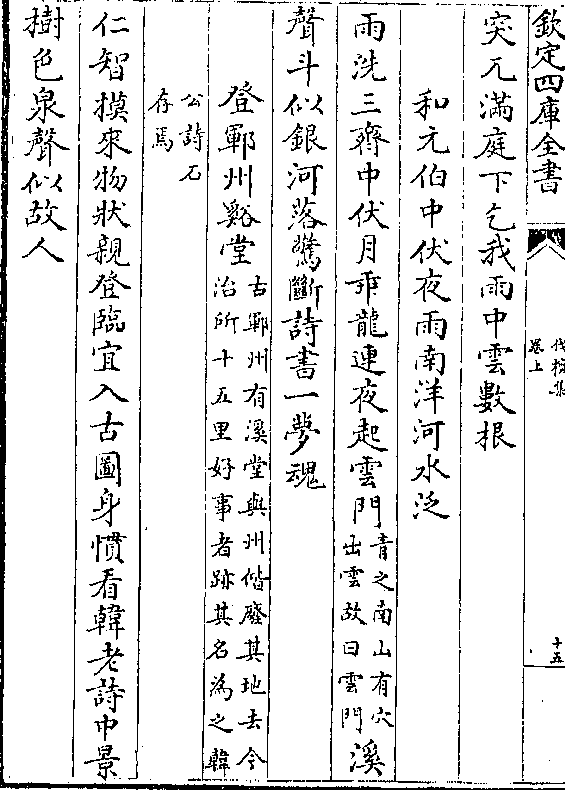 欽定四庫全書
伐檀集
卷上
十五
突兀滿庭下乞我雨中雲數根
和元伯中伏夜雨南洋河水泛
雨洗三齊中伏月乖龍連夜起雲門
青之南山有穴
出雲故曰雲門
溪
聲斗似銀河落驚斷詩書一夢魂
登鄆州谿堂
古鄆州有溪堂與州偕廢其地去今
治所十五里好事者跡其名為之韓
公詩石
存焉
仁智摸來物狀親登臨宜入古圖身慣看韓老詩中景
樹色泉聲似故人